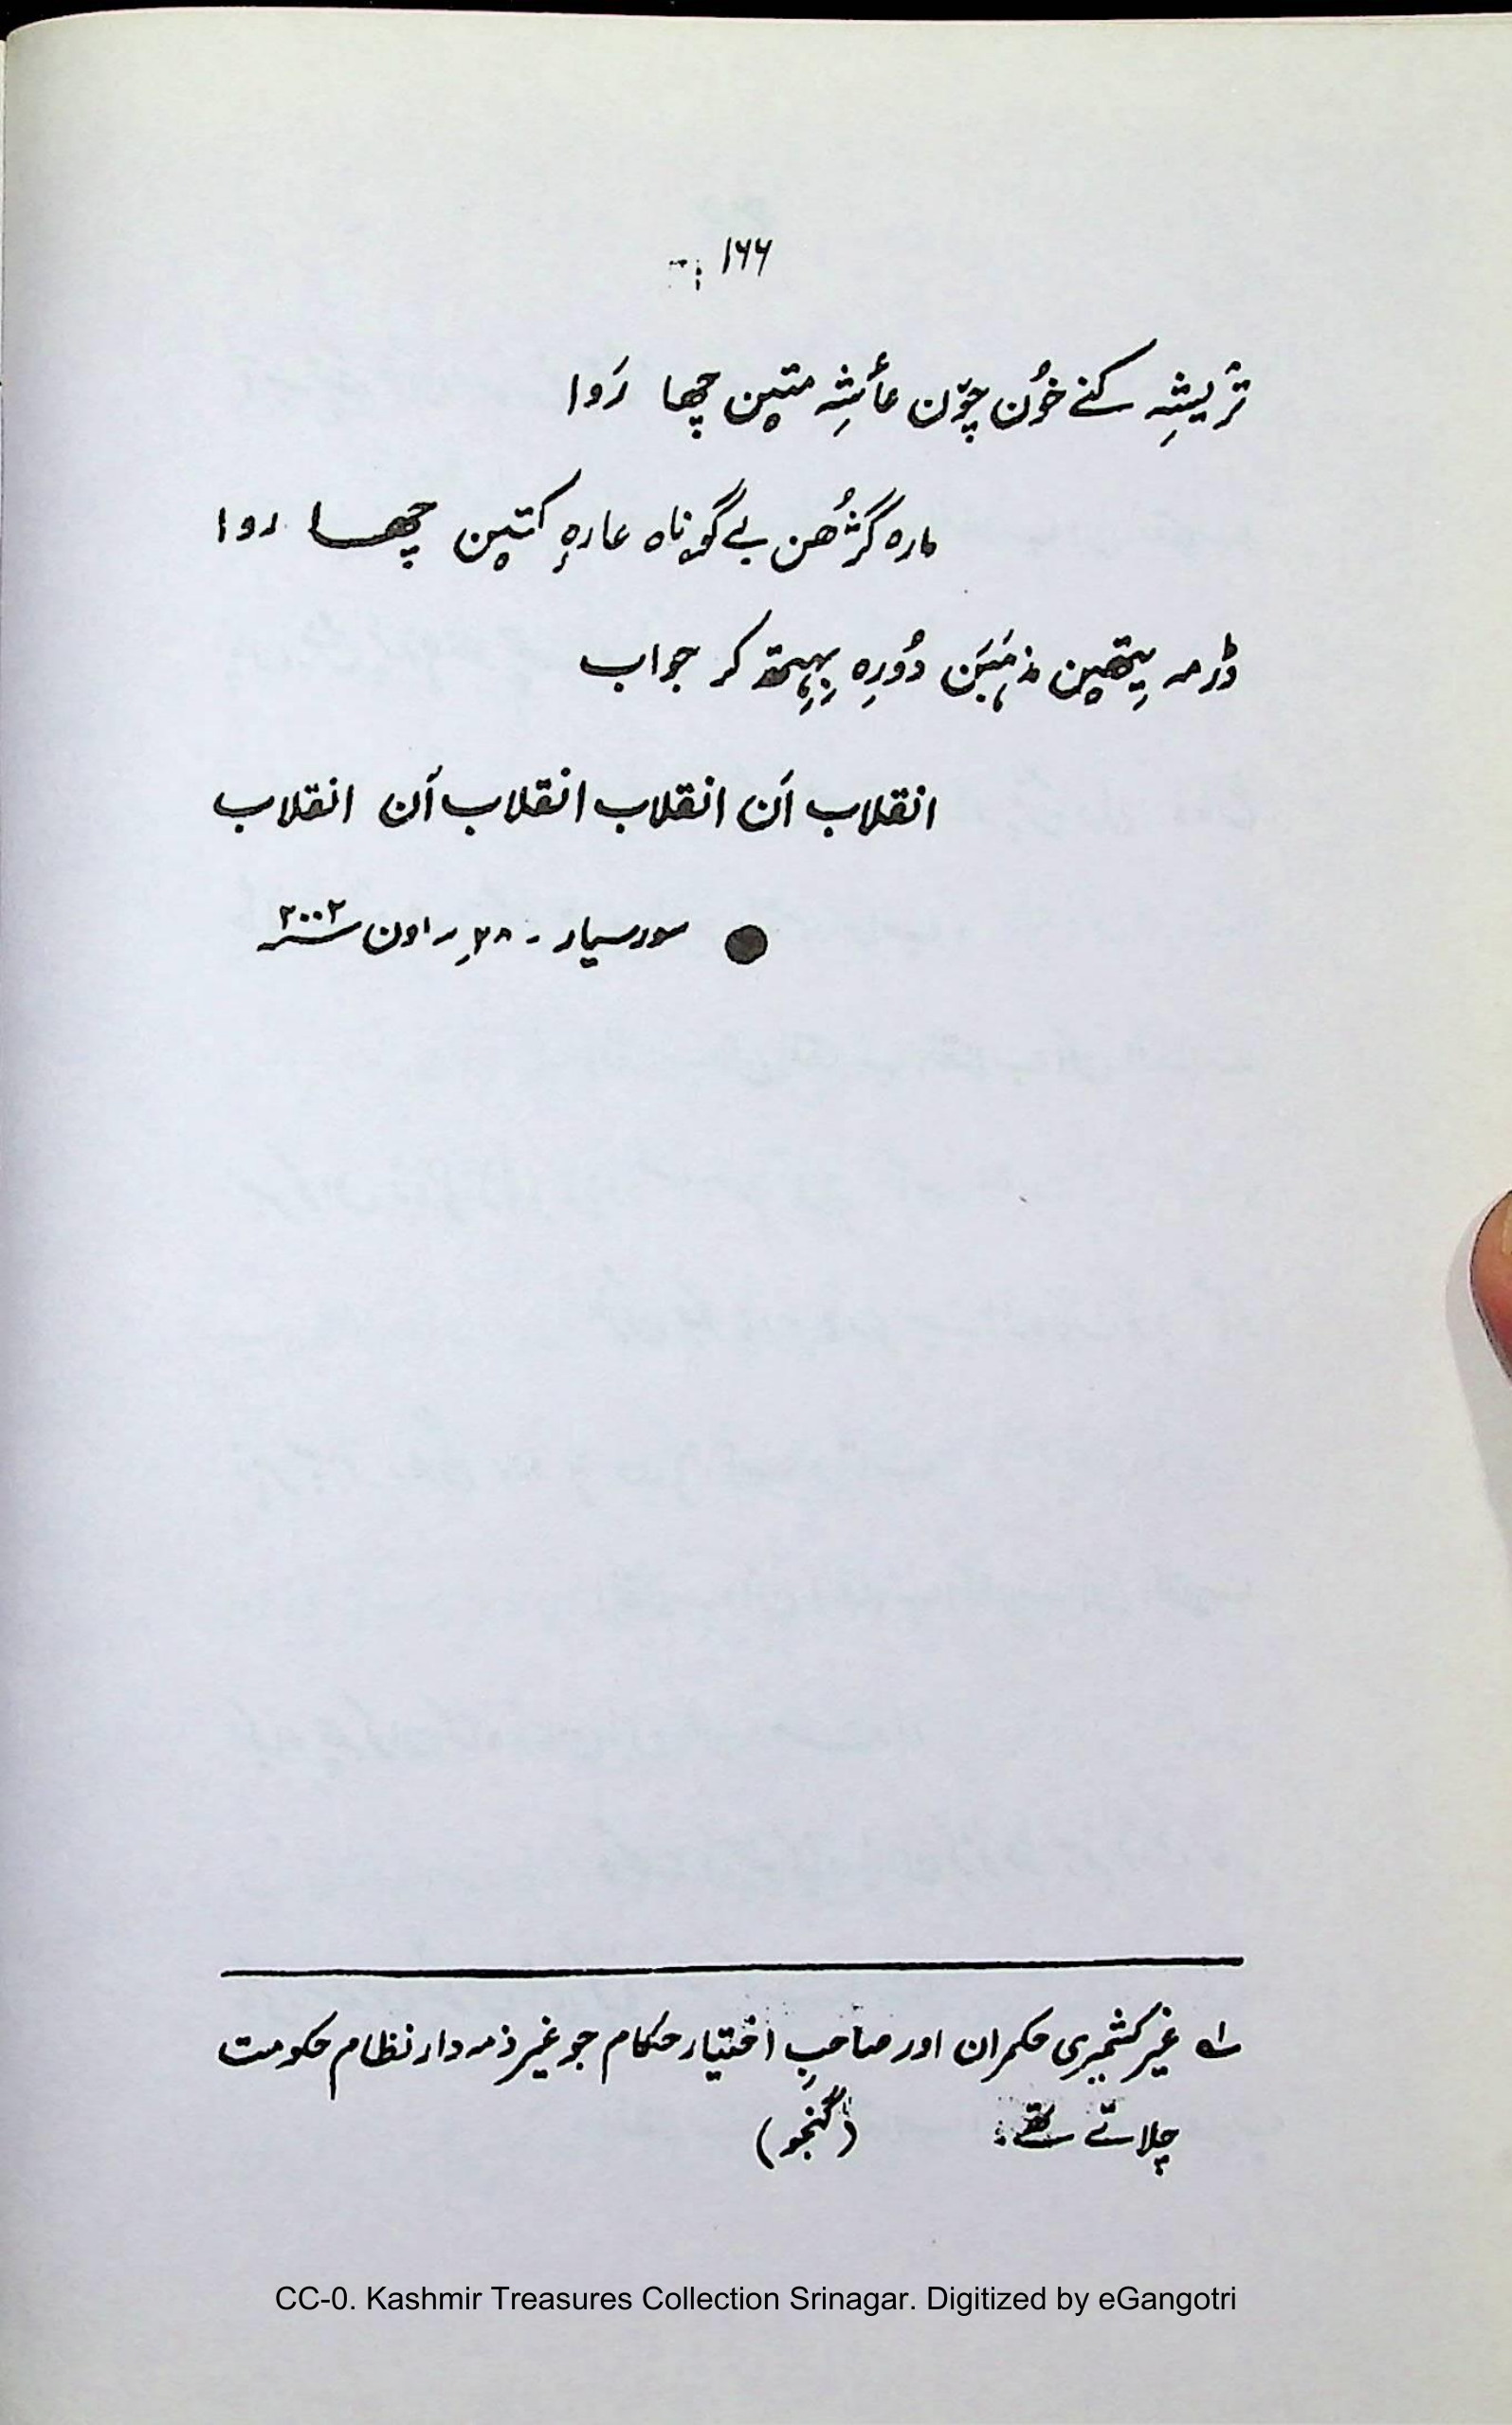 ۱۶۶
ترٛیشہِ کنے خوٗن چوٚن عأشہِ متیٚن چھا رَوا
مارہ گژُھن بے گوناہ عارہٕ کتیٚن چھا روا
ڈرمہ یِتھیٚن مذہَبَن دوٗرِہ بہِتھ کر جواب
انقلاب اَن انقلاب انقلاب اَن انقلاب
● سورسیار ۔ ۲۸؍ ساون ۲۰۰۲
۱ے غیر کشمیری حکمران اور صاحبِ اختیار حکام جو غیر ذمہ دار نظام حکومت
چلاتے تھے۔ (گنجو)
CC-0. Kashmir Treasures Collection Srinagar. Digitized by eGangotri